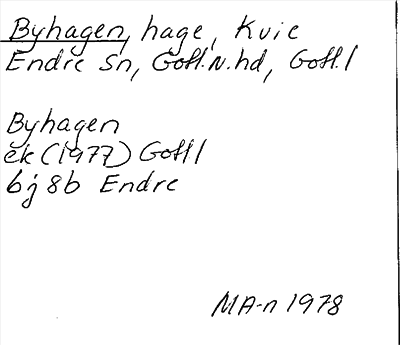 Byhagen, hage, Kvie
Endre Sn, Gotl.N.hd, Gotl.l
Byhagen
ek (1977) Gotl l
bj 8b Endre
MA-n 1978